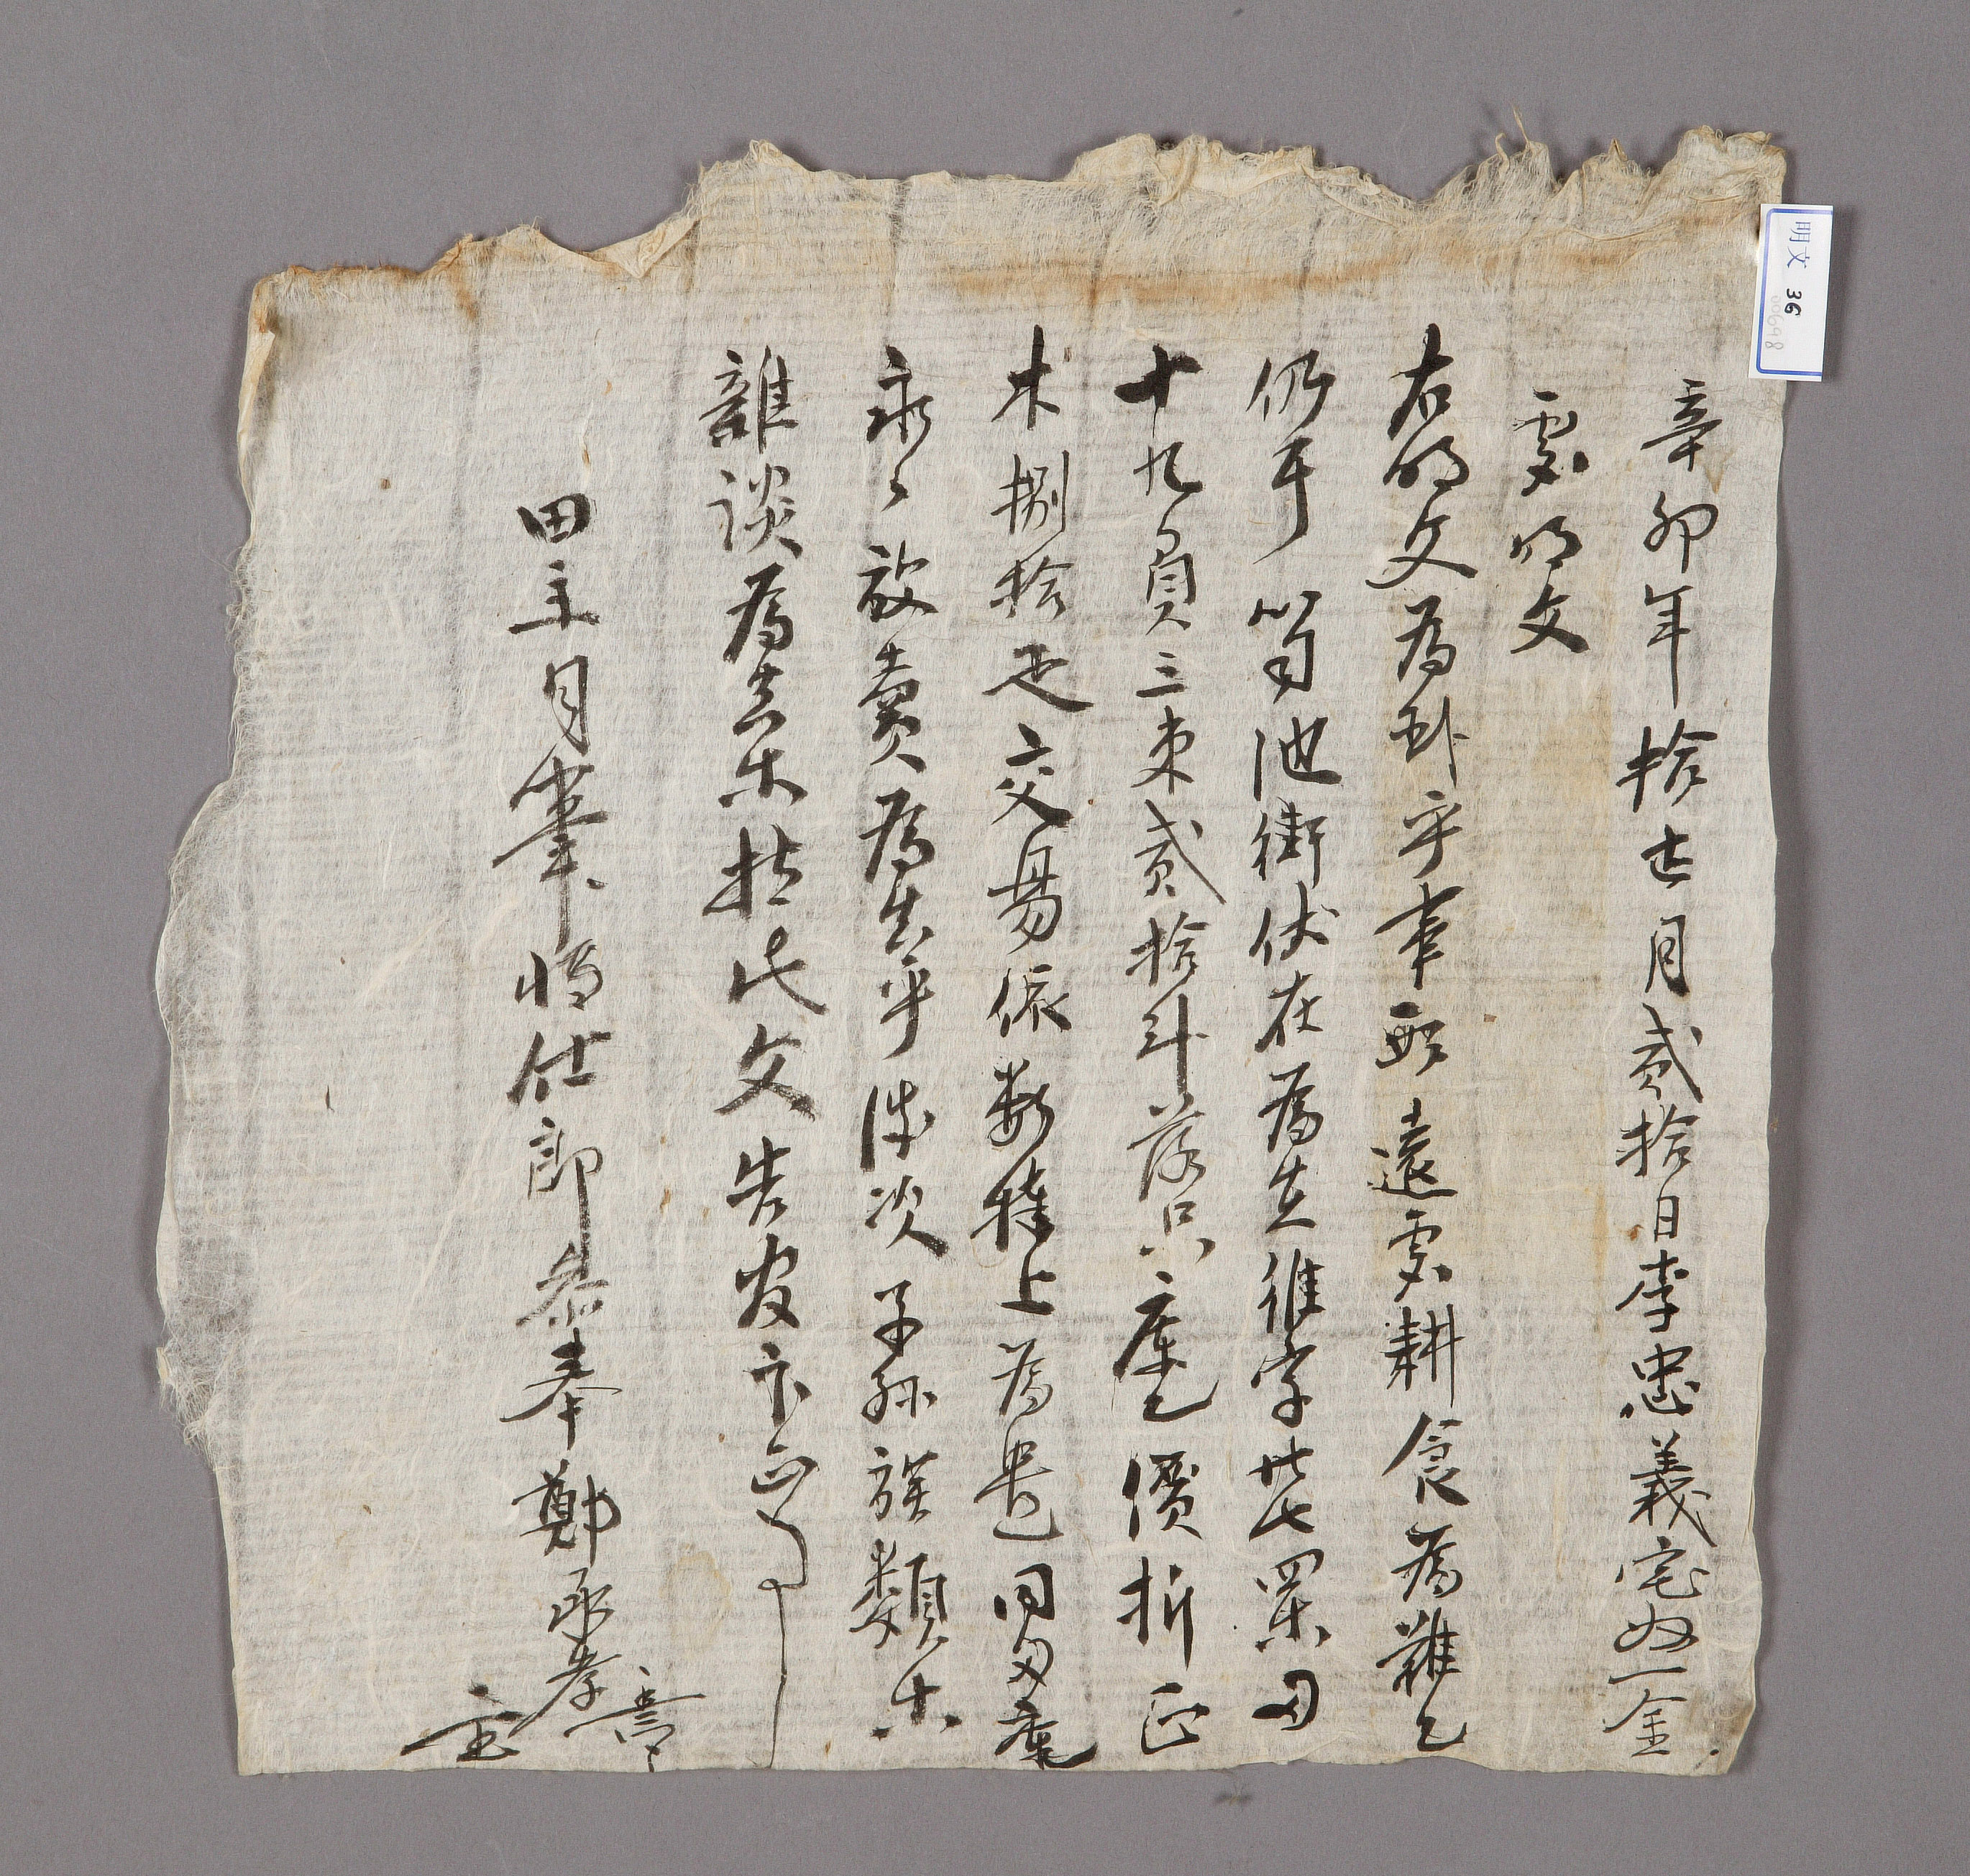 辛卯年拾壹月貳拾日李忠義宅奴一金
處明文
右明文爲臥乎事段遠處耕食爲難乙
仍于筍池街伏在爲在維字卄七果田
十九負三束貳拾斗落只庫乙價折正
木捌拾疋交易依數捧上爲遣同田庫
永〻放賣爲去乎後次子孫族類等
雜談爲去等持此文告官卞正事
田主自筆將仕郎參奉鄭承孝
明文 36
00698